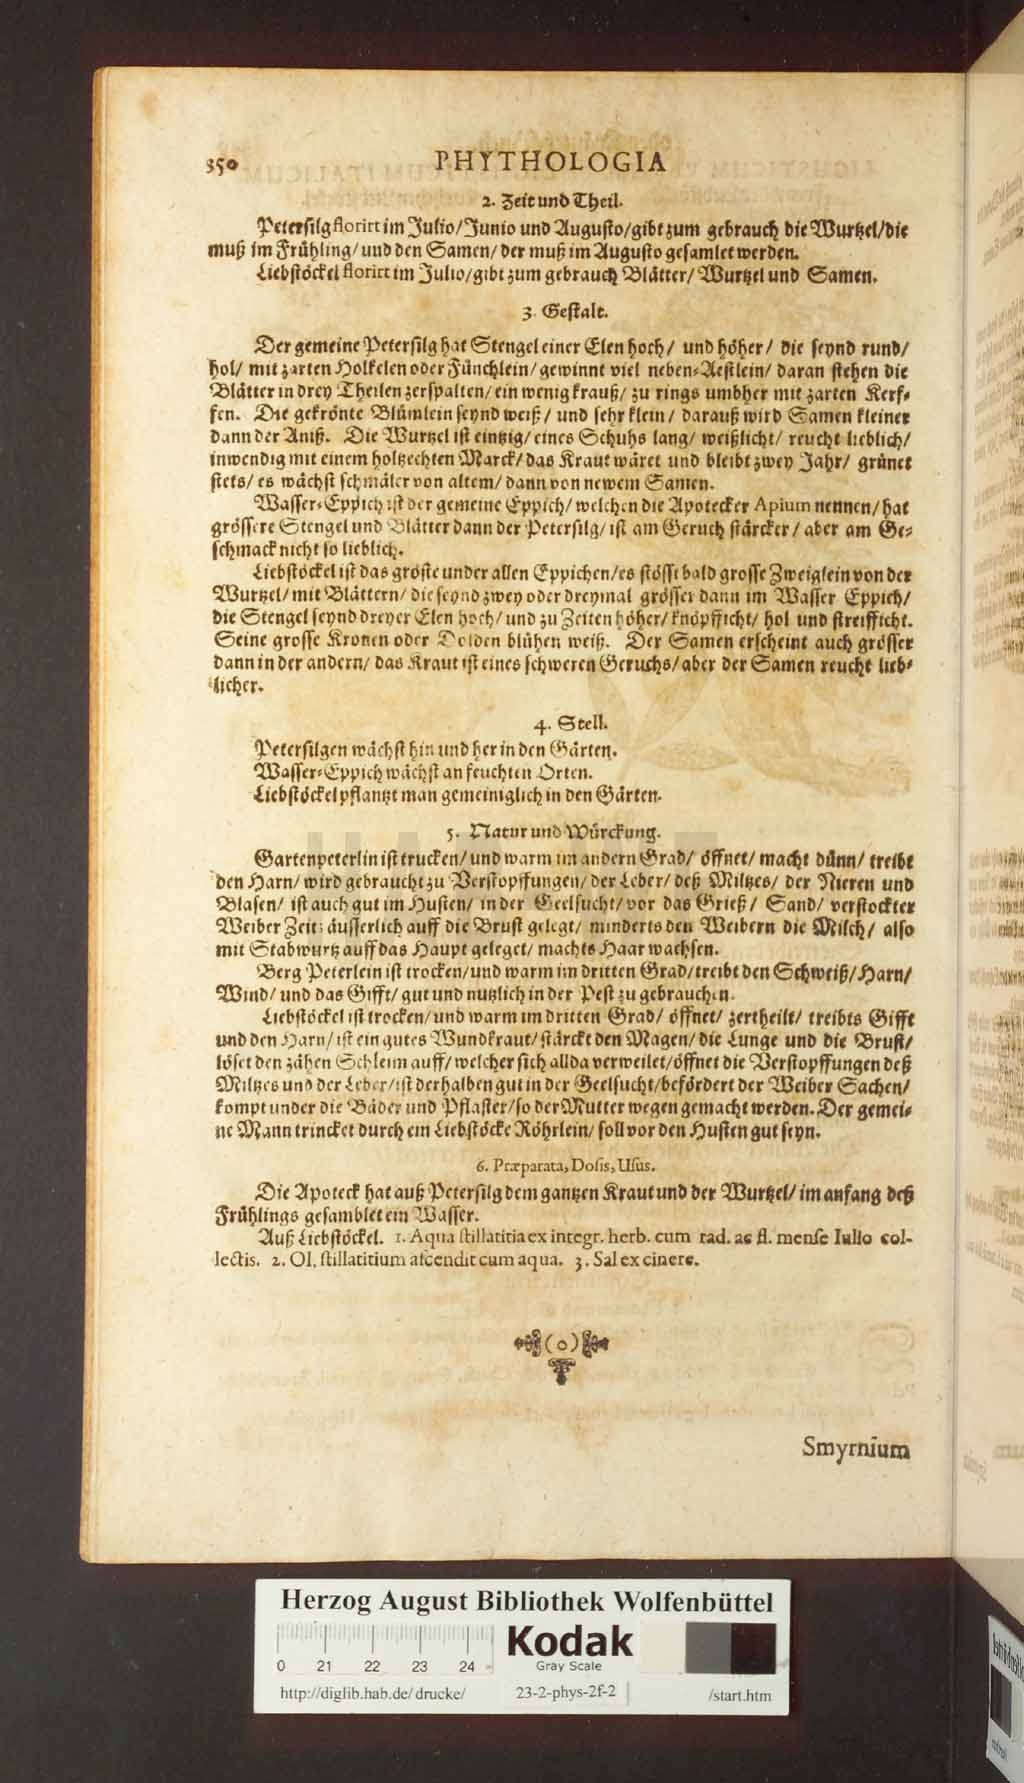 350 PHYTHOLOGIA
2. Zeit und Theil.
Petersilg florirt im Julio/Junio und Augusto/gibt zum gebrauch die Wurtzel/die
muß im Frühling/und den Samen/der muß im Augusto gesamlet werden.
Liebstöckel florirt im Julio/gibt zum gebrauch Blätter/Wurtzel und Samen.
3. Gestalt.
Der gemeine Petersilg hat Stengel einer Elen hoch/ und höher/ die seynd rund/
hol/ mit zarten Holkelen oder Fünchlein/ gewinnt viel neben-Aestlein/ daran stehen die
Blätter in drey Theilen zerspalten/ ein wenig krauß/ zu rings umbher mit zarten Kerf-
fen. Die gekrönte Blümlein seynd weiß/ und sehr klein/ darauß wird Samen kleiner
dann der Aniß. Die Wurtzel ist eintzig/ eines Schuhs lang/ weißlicht/ reucht lieblich/
inwendig mit einem holtzechten Marck/ das Kraut wäret und bleibt zwey Jahr/ grünet
stets/ es wächst schmäler von altem/ dann von newem Samen.
Wasser-Eppich ist der gemeine Eppich/ welchen die Apotecker Apium nennen/ hat
grössere Stengel und Blätter dann der Petersilg/ ist am Geruch stärcker/ aber am Ge-
schmack nicht so lieblich.
Liebstöckel ist das gröste under allen Eppichen/es stösst bald grosse Zweiglein von der
Wurtzel/ mit Blättern/ die seynd zwey oder dreymal grösser dann im Wasser Eppich/
die Stengel seynd dreyer Elen hoch/ und zu Zeiten höher/ knöpfficht/ hol und streifficht.
Seine grosse Kronen oder Dolden blühen weiß. Der Samen erscheint auch grösser
dann in der andern/ das Kraut ist eines schweren Geruchs/ aber der Samen reucht lieb-
licher.
4. Stell.
Petersilgen wächst hin und her in den Gärten.
Wasser-Eppich wächst an feuchten Orten.
Liebstöckel pflantzt man gemeiniglich in den Gärten.
5. Natur und Würckung.
Gartenpeterlin ist trucken/ und warm im andern Grad/ öffnet/ macht dünn/ treibt
den Harn/ wird gebraucht zu Verstopffungen/ der Leber/ deß Miltzes/ der Nieren und
Blasen/ ist auch gut im Husten/ in der Geelsucht/ vor das Grieß/ Sand/ verstockter
Weiber Zeit: äusserlich auff die Brust gelegt/ minderts den Weibern die Milch/ also
mit Stabwurtz auff das Haupt geleget/ machts Haar wachsen.
Berg Peterlein ist trocken/und warm im dritten Grad/treibt den Schweiß/Harn/
Wind/ und das Gifft/ gut und nutzlich in der Pest zu gebrauchen.
Liebstöckel ist trocken/ und warm im dritten Grad/ öffnet/ zertheilt/ treibts Gifft
und den Harn/ ist ein gutes Wundkraut/ stärckt den Magen/ die Lunge und die Brust/
löset den zähen Schleim auff/ welcher sich allda verweilet/öffnet die Verstopffungen deß
Miltzes und der Leber/ist derhalben gut in der Geelsucht/befördert der Weiber Sachen/
kompt under die Bäder und Pflaster/so der Mutter wegen gemacht werden. Der gemei-
ne Mann trincket durch ein Liebstöcke Röhrlein/ soll vor den Husten gut seyn.
6. Præparata, Dosis, Usus.
Die Apoteck hat auß Petersilg dem gantzen Kraut und der Wurtzel/ im anfang deß
Frühlings gesamblet ein Wasser.
Auß Liebstöckel. 1. Aqua stillatitia ex integr. herb. cum rad. ac fl. mense Iulio col-
lectis. 2. Ol. stillatitium ascendit cum aqua. 3. Sal ex cinere.
(o)
Smyrnium
Herzog August Bibliothek Wolfenbüttel
0 21 22 23 24
Kodak
Gray Scale
http://diglib.hab.de/drucke/ 23-2-phys-2f-2 /start.htm